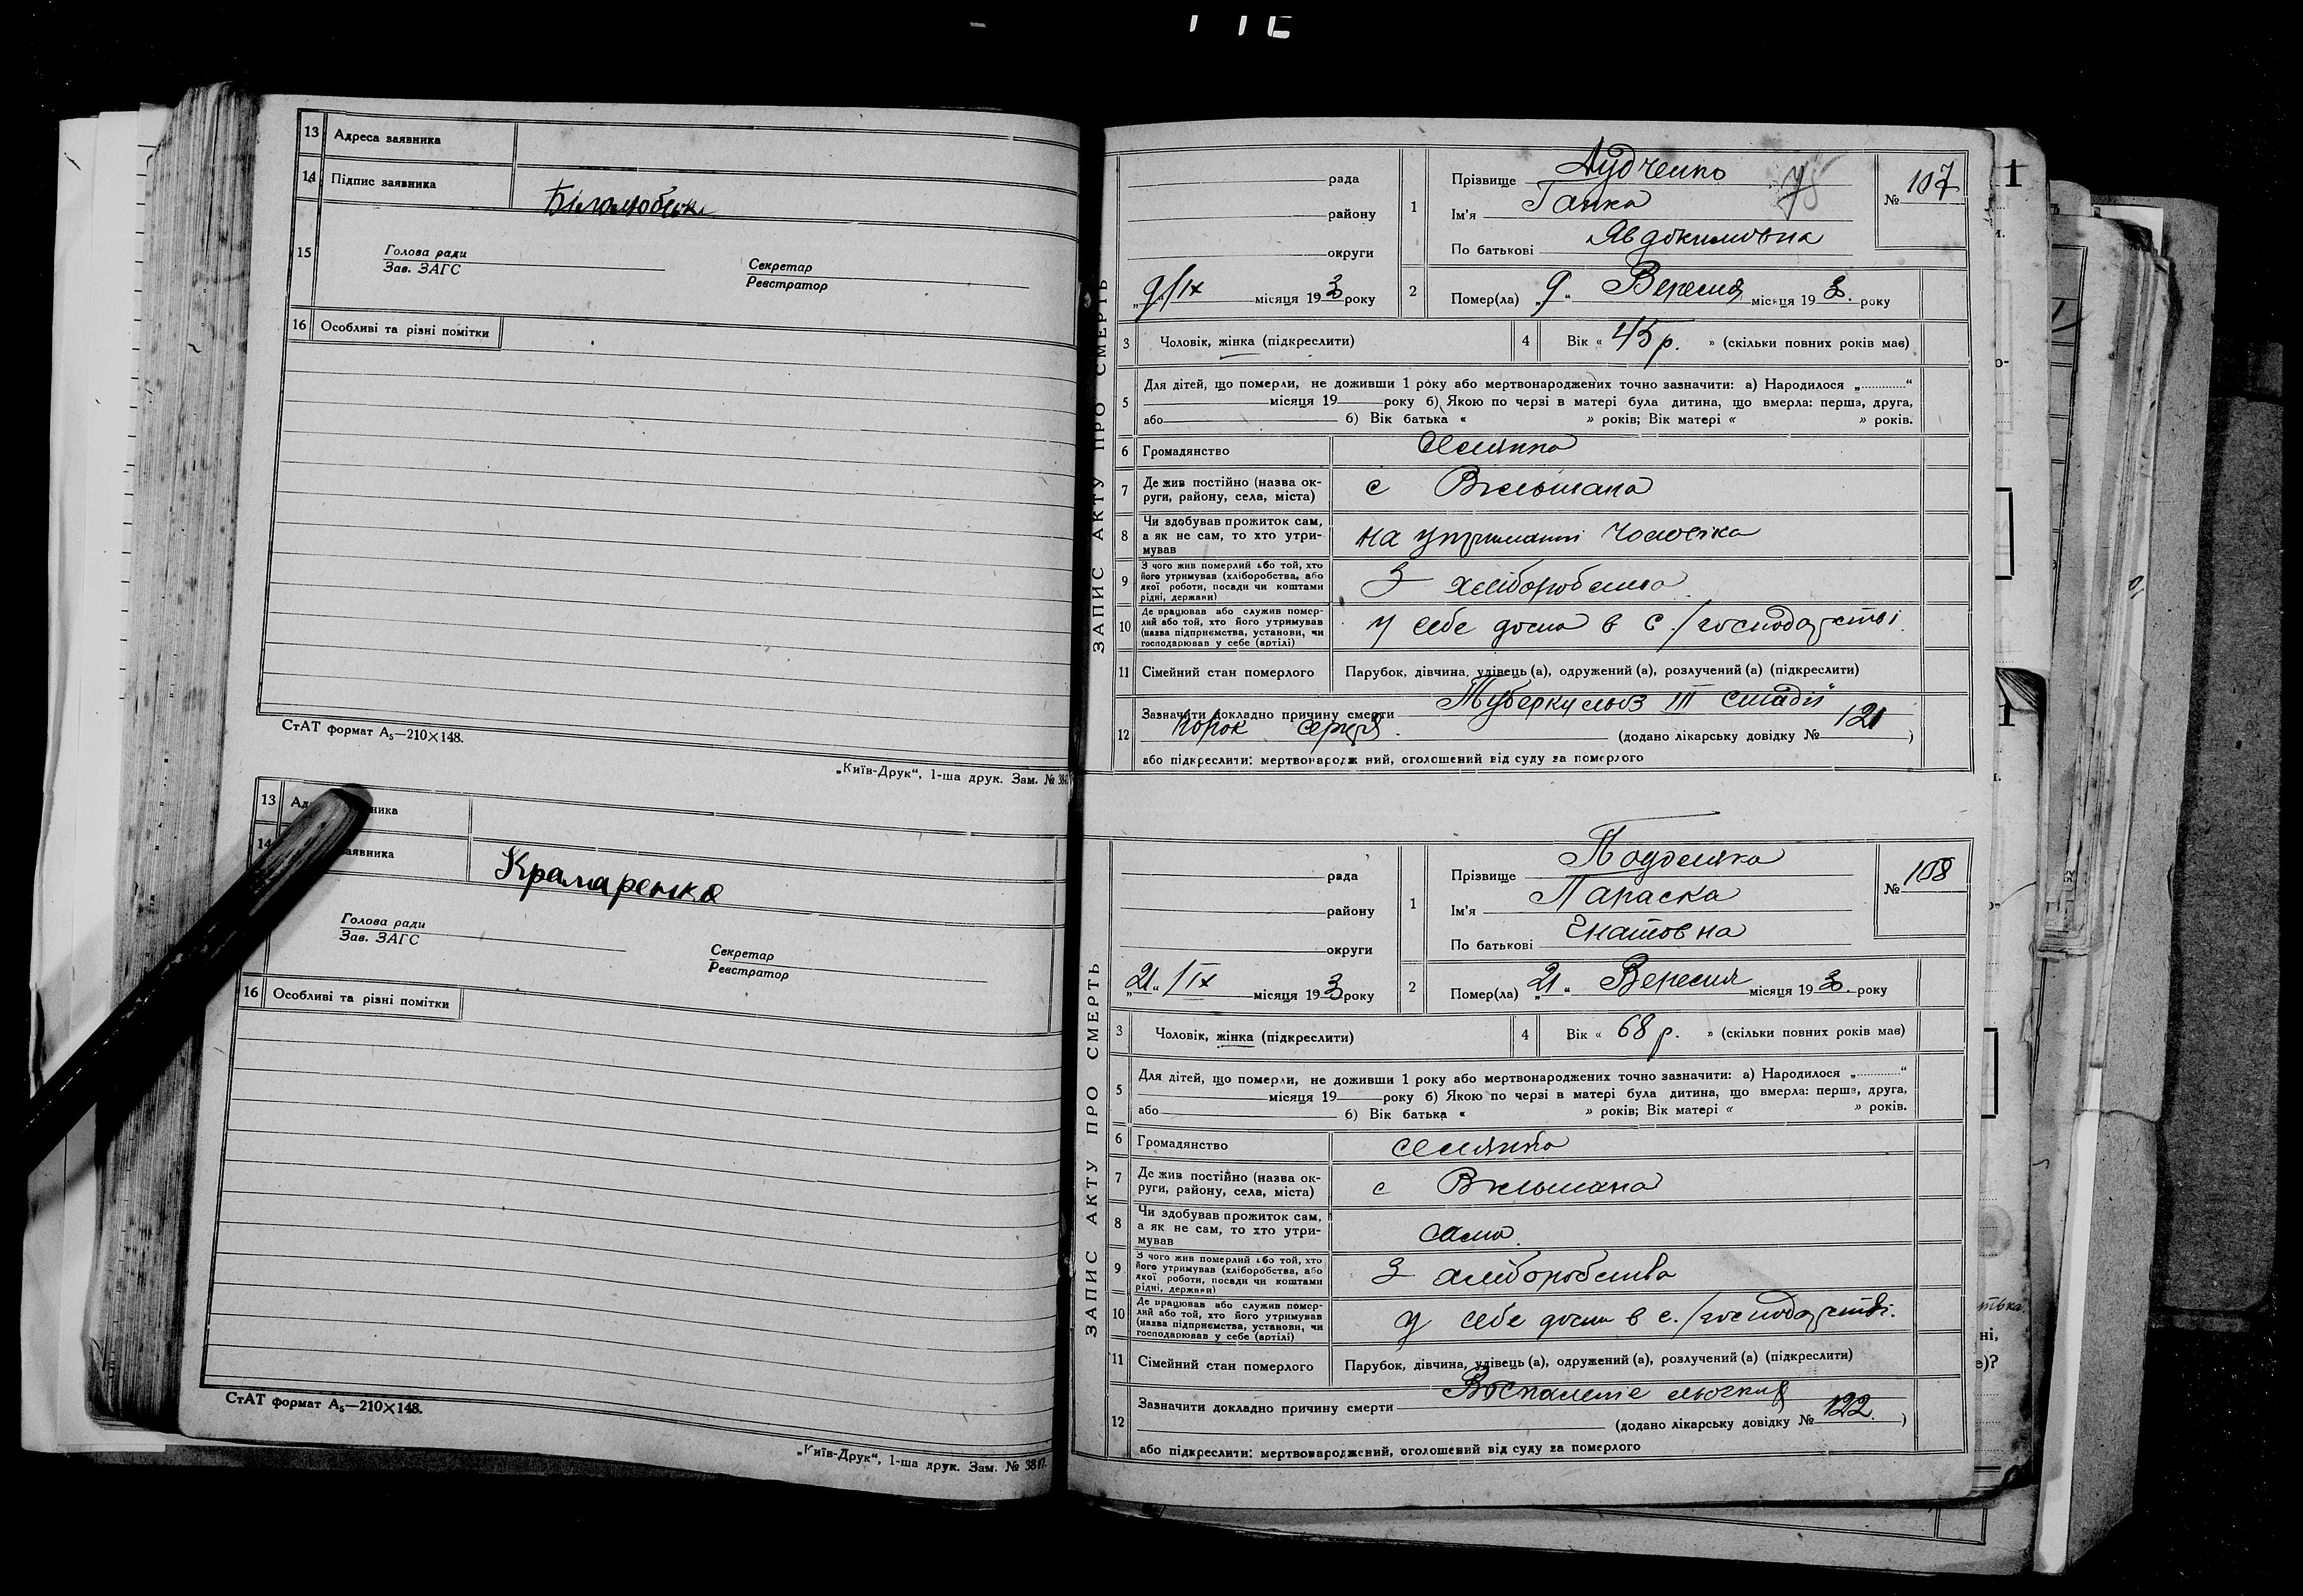 13 Адреса заявника
14 Підпис заявника Білолюбськ
15 Голова ради
Зав. ЗАГС
Секретар
Реєстратор
16 Особливі та різні помітки
СтАТ формат А₅—210×148.
„Київ-Друк“, 1-ша друк. Зам. № 38
13 Ад ника
14 аявника Крамаренко
Голова ради
Зав. ЗАГС
Секретар
Реєстратор
16 Особливі та різні помітки
СтАТ формат А₅—210×148.
„Київ-Друк“, 1-ша друк. Зам. № 3817.
ЗАПИС АКТУ ПРО СМЕРТЬ
рада
району
округи
„9“/IX місяця 193 року
1 Прізвище Дудченко
Ім'я Ганна
По батькові Явдокимовна
№ 107
2 Помер(ла) „9“ Вересня місяця 193. року
3 Чоловік, жінка (підкреслити)
4 Вік « 45 р. » (скільки повних років має)
5 Для дітей, що померли, не доживши 1 року або мертвонароджених точно зазначити: а) Народилося „ “
місяця 19 року б) Якою по черзі в матері була дитина, що вмерла: перша, друга,
або б) Вік батька « » років; Вік матері « » років.
6 Громадянство Селянка
7 Де жив постійно (назва ок-
руги, району, села, міста) с Вільшана
8 Чи здобував прожиток сам,
а як не сам, то хто утри-
мував на утриманні чоловіка
9 З чого жив померлий або той, хто
його утримував (хліборобства, або
якої роботи, посади чи коштами
рідні, держави) З хліборобства
10 Де працював або служив помер-
лий або той, хто його утримував
(назва підприємства, установи, чи
господарював у себе (артілі) у себе дома в с./господарстві.
11 Сімейний стан померлого Парубок, дівчина, удівець (а), одружений (а), розлучений (а) (підкреслити)
12 Зазначити докладно причину смерти Туберкульоз III стадії
порок серця. (додано лікарську довідку № 121)
або підкреслити: мертвонародж ний, оголошений від суду за померлого
ЗАПИС АКТУ ПРО СМЕРТЬ
рада
району
округи
„21“/IX місяця 193 року
1 Прізвище
Ім'я Параска
По батькові Гнатовна
№ 108
2 Помер(ла) „21“ Вересня місяця 193. року
3 Чоловік, жінка (підкреслити)
4 Вік « 68 р. » (скільки повних років має)
5 Для дітей, що померли, не доживши 1 року або мертвонароджених точно зазначити: а) Народилося „ “
місяця 19 року б) Якою по черзі в матері була дитина, що вмерла: перша, друга,
або б) Вік батька « » років; Вік матері « » років.
6 Громадянство селянка
7 Де жив постійно (назва ок-
руги, району, села, міста) с Вільшана
8 Чи здобував прожиток сам,
а як не сам, то хто утри-
мував сама.
9 З чого жив померлий або той, хто
його утримував (хліборобства, або
якої роботи, посади чи коштами
рідні, держави) З хліборобства
10 Де працював або служив помер-
лий або той, хто його утримував
(назва підприємства, установи, чи
господарював у себе (артілі) у себе дома в с./господарстві.
11 Сімейний стан померлого Парубок, дівчина, удівець (а), одружений (а), розлучений (а) (підкреслити)
12 Зазначити докладно причину смерти Воспаленіє льогких
(додано лікарську довідку № 122.)
або підкреслити: мертвонароджений, оголошений від суду за померлого